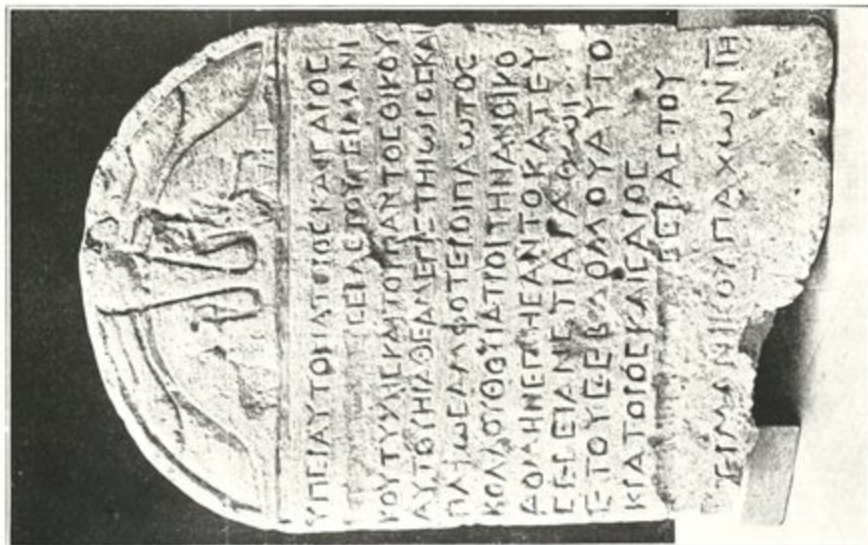 ΥΠΕΡΑΥΤΟΚΡΑΤΟΡΟΣΚΑΙΣΑΡΟΣ
ΣΕΒΑΣΤΟΥΓΕΡΜΑΝΙ
ΚΟΥΤΥΧΗΣΚΑΙΤΟΥΠΑΝΤΟΣΟΙΚΟΥ
ΑΥΤΟΥΗΡΑΘΕΑΜΕΓΙΣΤΗΙΩΡΟΣΚΑΙ
ΑΜΦΟΤΕΡΟΙΠΑΩΤΟΣ
ΚΟΛΛΟΥΘΟΥΙΑΤΡΟΙΤΗΝΑΝΟΙΚΟ
ΔΟΜΗΝΕΠΟΙΗΣΑΝΤΟΚΑΤΕΥ
ΣΕΒΕΙΑΝΕΠΑΓΑΘΩΙ
ΕΤΟΥΣΕΒΔΟΜΟΥΑΥΤΟ
ΚΡΑΤΟΡΟΣΚΑΙΣΑΡΟΣ
ΣΕΒΑΣΤΟΥ
ΓΕΡΜΑΝΙΚΟΥΠΑΧΩΝΙΗ